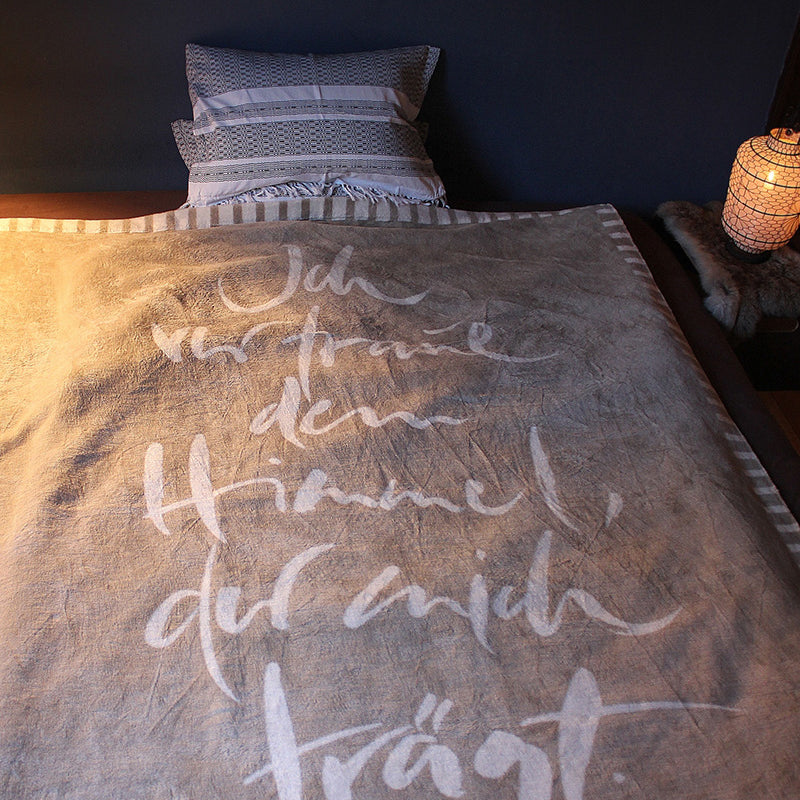 Ich
vertraue
dem
Himmel,
der mich
trägt.